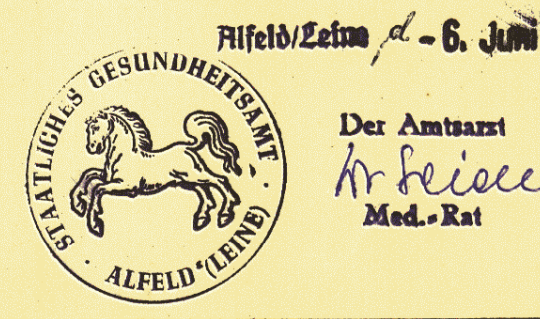 Alfeld/Leine d - 6. Juni
STAATLICHES GESUNDHEITSAMT
· ALFELD (LEINE) ·
Der Amtsarzt
Dr
Med.-Rat